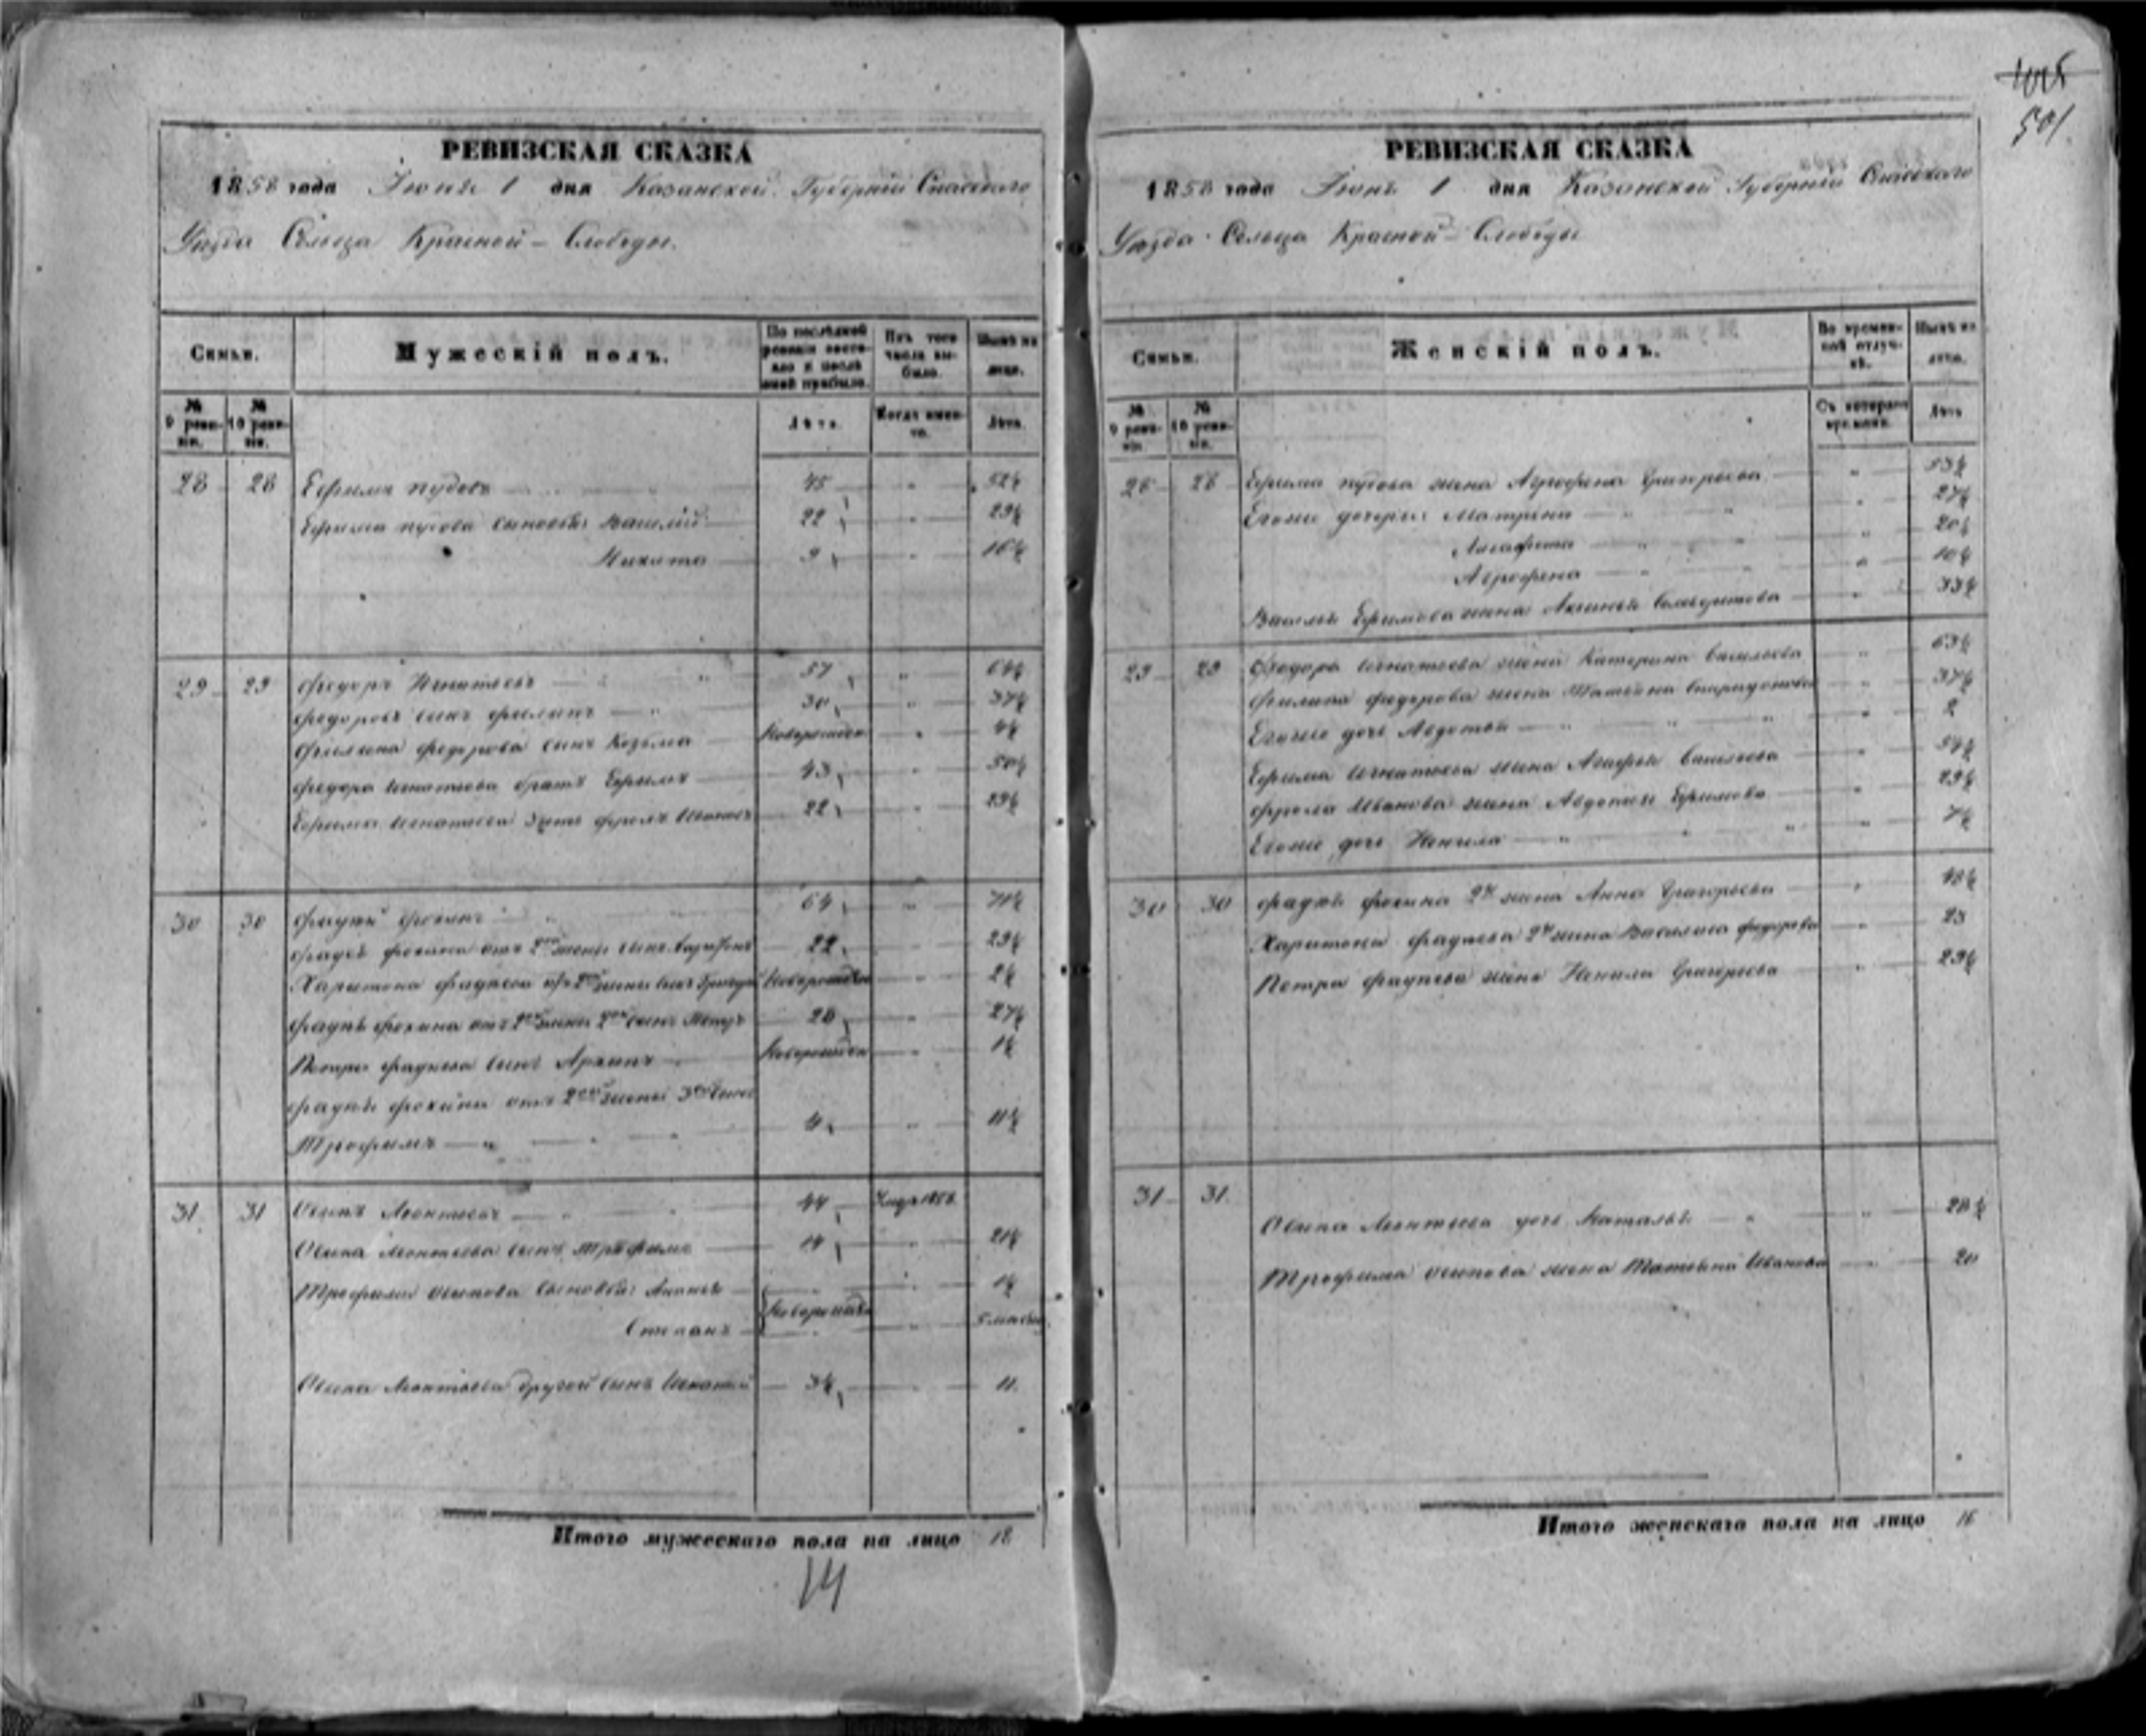 РЕВИЗСКАЯ СКАЗКА
1858 года Іюня 1 дня Казанской Губерніи Спасскаго
Уѣзда Сельца Красной-Слободы.
Семьи.
Мужескій полъ.
По послѣдней ревизіи состояло и послѣ оной прибыло.
Изъ того числа выбыло.
Нынѣ на лицо.
№ 9 ревизіи.
№ 10 ревизіи.
Лѣта.
Когда именно.
Лѣта.
28 28 Ефимъ Пудовъ 45 " 52½
Ефима Пудова сыновья: Василій 22 " 29½
Никита 9 " 16½
29 29 Федоръ Игнатьевъ 57 " 64½
Федоровъ сынъ Филипъ 30 " 37½
Филипа Федорова сынъ Козьма Новорожден " 4½
Федора Игнатьева братъ Ефимъ 43 " 50½
Ефима Игнатьева зять Фролъ Иванов 22 " 29½
30 30 Фадѣй Фокинъ 64 " 71½
Фадѣя Фокина отъ 2ой жены сынъ Харитонъ 22 " 29½
Харитона Фадѣева отъ 2ой жены сынъ Новорожден " 2½
Фадѣя Фокина отъ 2ой жены 2ой сынъ Петръ 20 " 27½
Петра Фадѣева сынъ Архипъ Новорожден " 1½
Фадѣя Фокина отъ 2ой жены 3й сынъ
Трофимъ 4 " 11½
31 31 Осипъ Леонтьевъ 44
Осипа Леонтьева сынъ Трофимъ 14 " 21½
Трофима Осипова сыновья: Ананій " 1½
Степанъ Новорожден "
Осипа Леонтьева другой сынъ Игнатій 3½ 11
Итого мужескаго пола на лицо 18
14
501
РЕВИЗСКАЯ СКАЗКА
1858 года Іюнь 1 дня Казанской Губерніи Спасскаго
Уѣзда Сельца Красной-Слободы
Семьи.
Женскій полъ.
Во временной отлучкѣ.
Нынѣ на лицо.
№ 9 ревизіи.
№ 10 ревизіи.
Съ котораго времени.
Лѣта
28 28 Ефима Пудова жена Аграфена Григорьева " 53½
Егоже дочери: Матрена " 27½
" 20½
Аграфена " 10½
Василья Ефимова жена Аксинья " 33½
29 29 Федора Игнатьева жена Катерина Васильева " 63½
Филипа Федорова жена Татьяна Спиридонова " 37½
Егоже дочь Авдотья " 2
Ефима Игнатьева жена Агафья Васильева " 54½
Фрола Иванова жена Авдотья Ефимова " 29½
Егоже дочь Ненила " 7½
30 30 Фадѣя Фокина 2я жена Анна Григорьева " 48½
Харитона Фадѣева 2я жена Василиса Федорова " 23
Петра Фадѣева жена Ненила Григорьева " 29½
31 31 Осипа Леонтьева дочь Наталья " 28½
Трофима Осипова жена Татьяна Иванова " 20
Итого женскаго пола на лицо 16